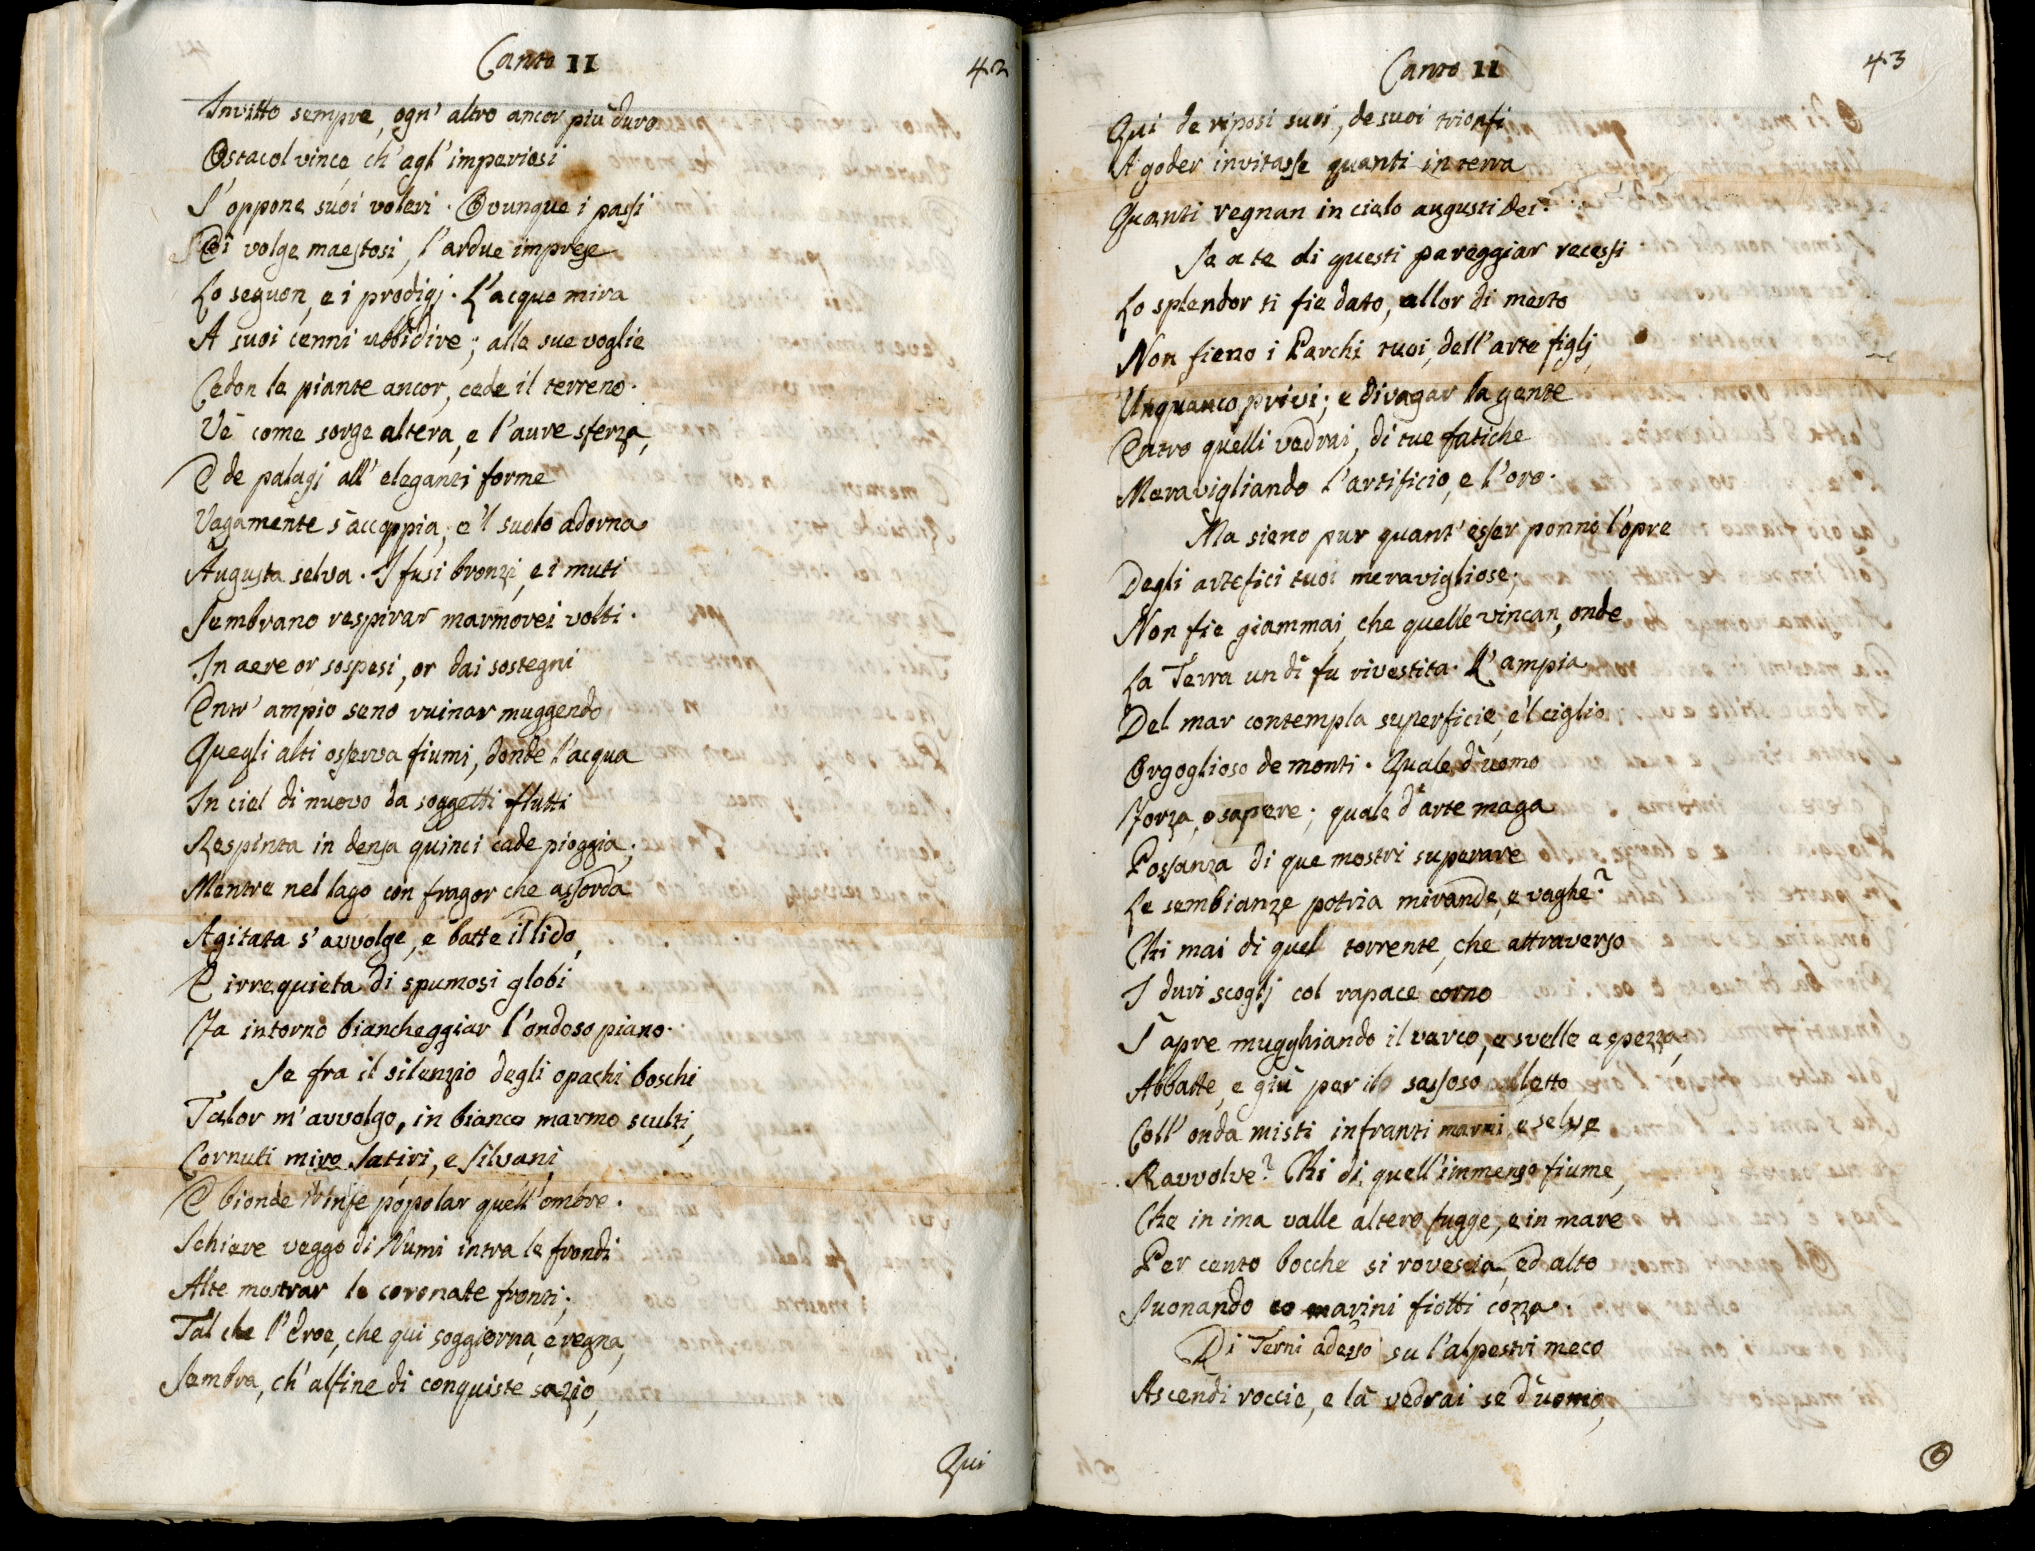 Canto II
42
Invitto sempre, ogn' altro ancor più duro
Ostacol vince, ch' agl' imperiosi
S' oppone suoi voleri. Ovunque i passi
Ei volge maestosi, l'ardue imprese
Lo seguon, e i prodigj. L'acque mira
A suoi cenni ubbidire; alle sue voglie
Cedon le piante ancor, cede il terreno.
Vè come sorge altera, e l'aure sferza,
E de palagj all' eleganti forme
Vagamente s'accoppia, e 'l suolo adorna
Augusta selva. I fusi bronzi, e i muti
Sembrano respirar marmorei volti.
In aere or sospesi, or dai sostegni
Entr' ampio seno ruinar muggendo
Quegli alti osserva fiumi, donde l'acqua
In ciel di nuovo da soggetti flutti
Respinta in densa quinci cade pioggia;
Mentre nel lago con fragor che assorda
Agitata s'avvolge, e batte il lido,
E irrequieta di spumosi globi
Fa intorno biancheggiar l'ondoso piano.
Se fra il silenzio degli opachi boschi
Talor m'avvolgo, in bianco marmo sculti,
Cornuti miro Satiri, e Silvani,
E bionde Ninfe popolar quell'ombre.
Schiere veggo di Numi intra le frondi
Alte mostrar le coronate fronti;
Tal che l'Eroe, che qui soggiorna, e regna,
Sembra, ch' alfine di conquiste sazio,
Qui
Canto II
43
Qui de riposi suoi, de suoi trionfi
A goder invitasse quanti in terra
Quanti regnan in cielo augusti Dei.
Se a te di questi pareggiar recessi
Lo splendor ti fie dato, allor di merto
Non fieno i Parchi tuoi, dell'arte figlj,
Unquanco privi; e divagar la gente
Entro quelli vedrai, di tue fatiche
Meravigliando l'artificio, e l'oro.
Ma sieno pur quant' esser ponno l'opre
Degli artefici tuoi meravigliose;
Non fie giammai, che quelle vincan, onde
La Terra un dì fu rivestita. L'ampia
Del mar contempla superficie, e'l ciglio
Orgoglioso de monti. Quale d'uomo
Forza, o sapere; quale d'arte maga
Possanza di que mostri superare
Le sembianze potria mirande, e vaghe?
Chi mai di quel torrente, che attraverso
I duri scoglj col rapace corno
S'apre mugghiando il varco, e svelle e spezza,
Abbatte, e giù per il sassoso alletto
Coll' onda misti infranti marmi, e selve
Ravvolve? Chi di quell'immenso fiume,
Che in ima valle altero fugge, e in mare
Per cento bocche si rovescia, ed alto
Suonando co marini fiotti cozza.
Di Terni adesso su l'alpestri meco
Ascendi roccie, e là vedrai se d'uomo,